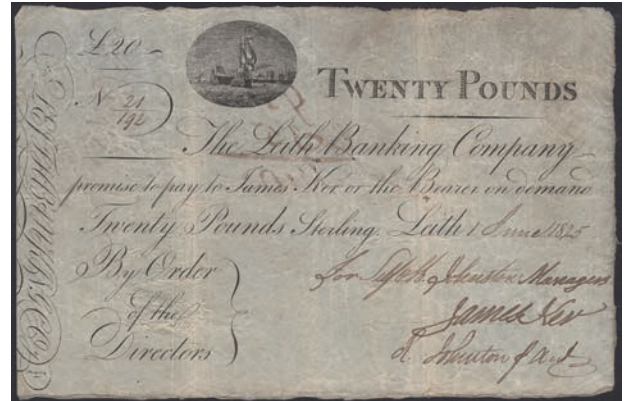 £20
TWENTY POUNDS
No 21/192
The Leith Banking Company
promise to pay to James Ker or the Bearer on demand
Twenty Pounds Sterling. Leith 1 June 1825
By Order
of the
Directors
for Self & Johnston Managers
James Ker